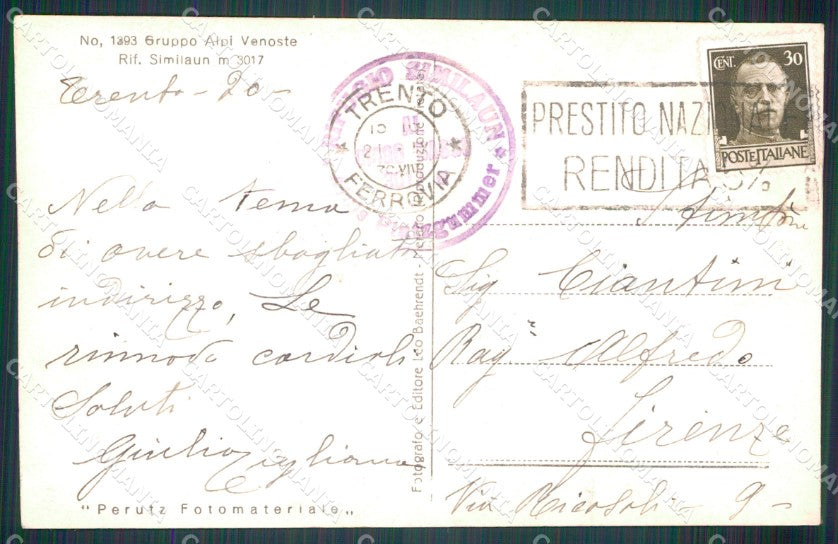 No, 1393 Gruppo Alpi Venoste
Rif. Similaun m 3017
Trento - 20 -
Nella tema
di avere sbagliato
indirizzo, Le
rinnovo cordiali
Saluti
Giulio
"Perutz Fotomateriale"
Fotografo e Editore Leo Baehrendt -
SIMILAUN
TRENTO
FERROVIA
PRESTITO NAZIONALE
RENDITA 5%
CENT. 30
POSTE ITALIANE
Sig. Ciantini
Rag. Alfredo
Firenze
Via Ricasoli 9 -
CARTOLINOMANIA